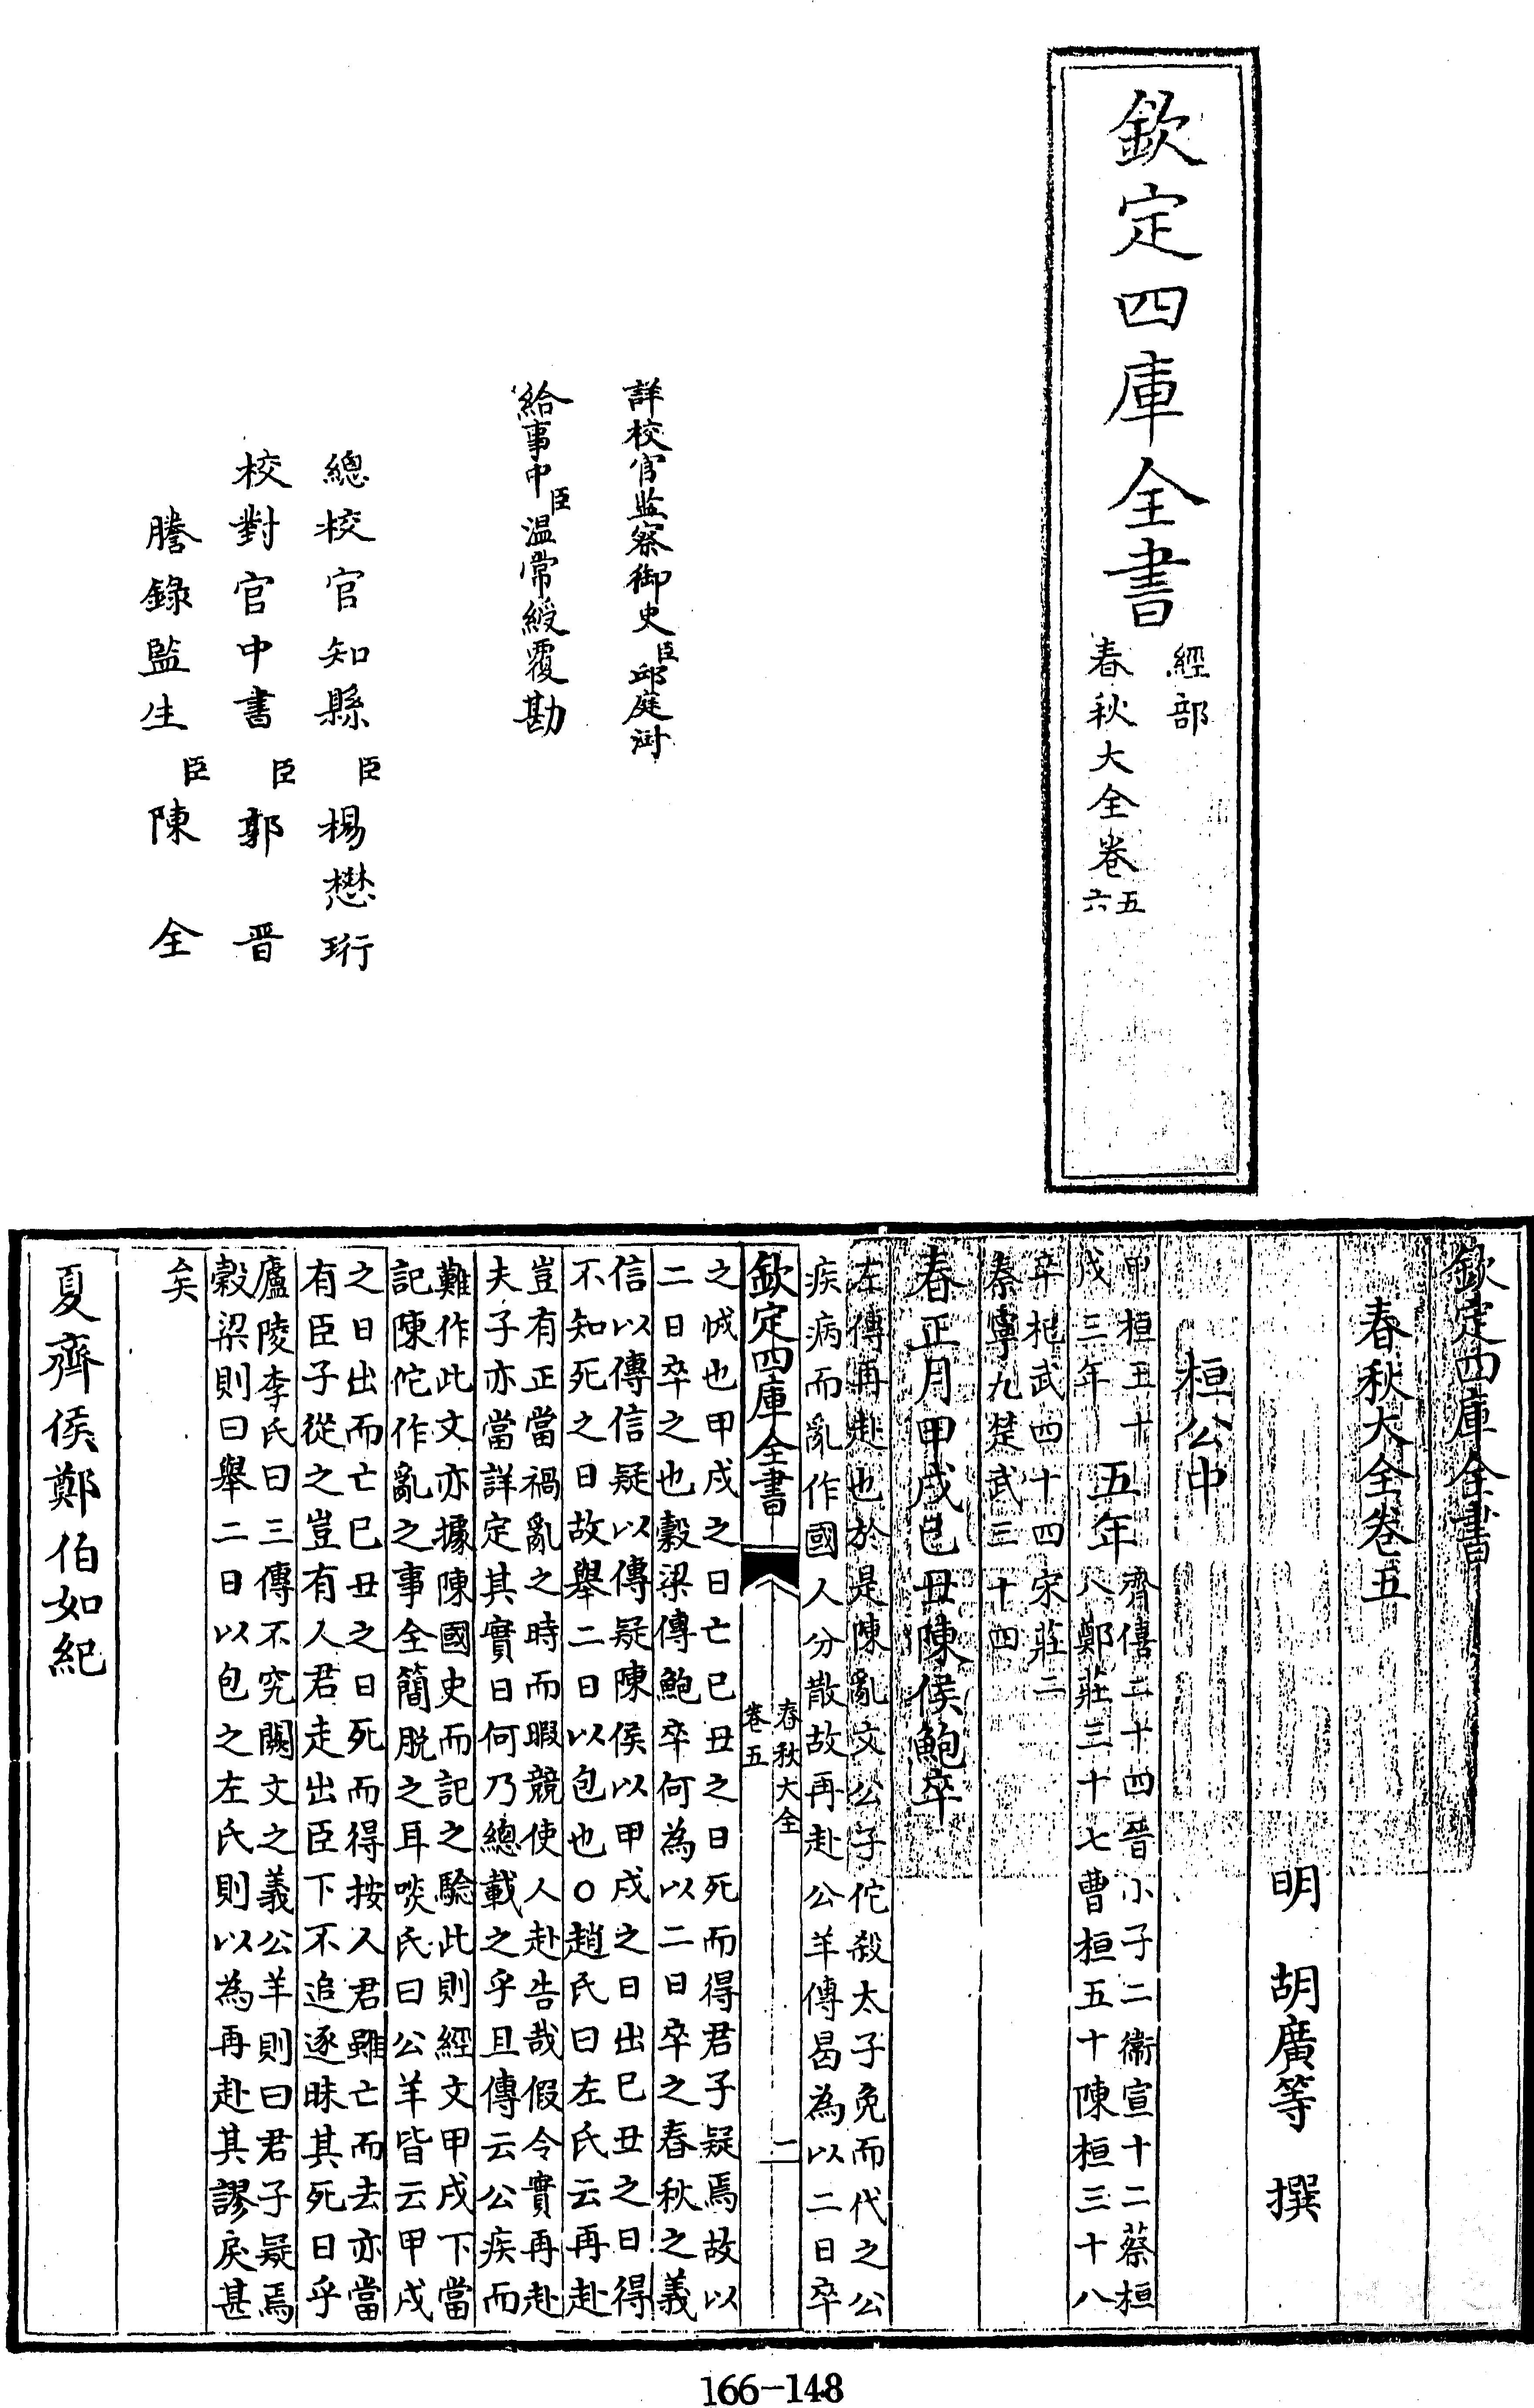 欽定四庫全書
經部
春秋大全卷五六
詳校官監察御史臣邱庭澍
給事中臣溫常綬覆勘
總校官知縣臣楊懋珩
校對官中書臣郭晋
謄錄監生臣陳全
欽定四庫全書
春秋大全卷五
明 胡廣等 撰
桓公中
甲桓五十
戌三年
五年
齊僖二十四晉小子二衞宣十二蔡桓
八鄭莊三十七曹桓五十陳桓三十八
辛杞武四十四宋莊二
秦寧九楚武三十四
春正月甲戌己丑陳侯鮑卒
左傳再赴也於是陳亂文公子佗殺太子免而代之公
疾病而亂作國人分散故再赴公羊傳曷為以二日卒
欽定四庫全書
春秋大全
卷五
二
之㤜也甲戌之日亡己丑之日死而得君子疑焉故以
二日卒之也穀梁傳鮑卒何為以二日卒之春秋之義
信以傳信疑以傳疑陳侯以甲戌之日出己丑之日得
不知死之日故舉二日以包也○趙氏曰左氏云再赴
豈有正當禍亂之時而暇競使人赴告哉假令實再赴
夫子亦當詳定其實日何乃總載之乎且傳云公疾而
難作此文亦據陳國史而記之驗此則經文甲戌下當
記陳佗作亂之事全簡脫之耳啖氏曰公羊皆云甲戌
之日出而亡己丑之日死而得按人君雖亡而去亦當
有臣子從之豈有人君走出臣下不追逐昧其死日乎
廬陵李氏曰三傳不究闕文之義公羊則曰君子疑焉
穀梁則曰舉二日以包之左氏則以為再赴其謬戾甚
矣
夏齊侯鄭伯如紀
166-148